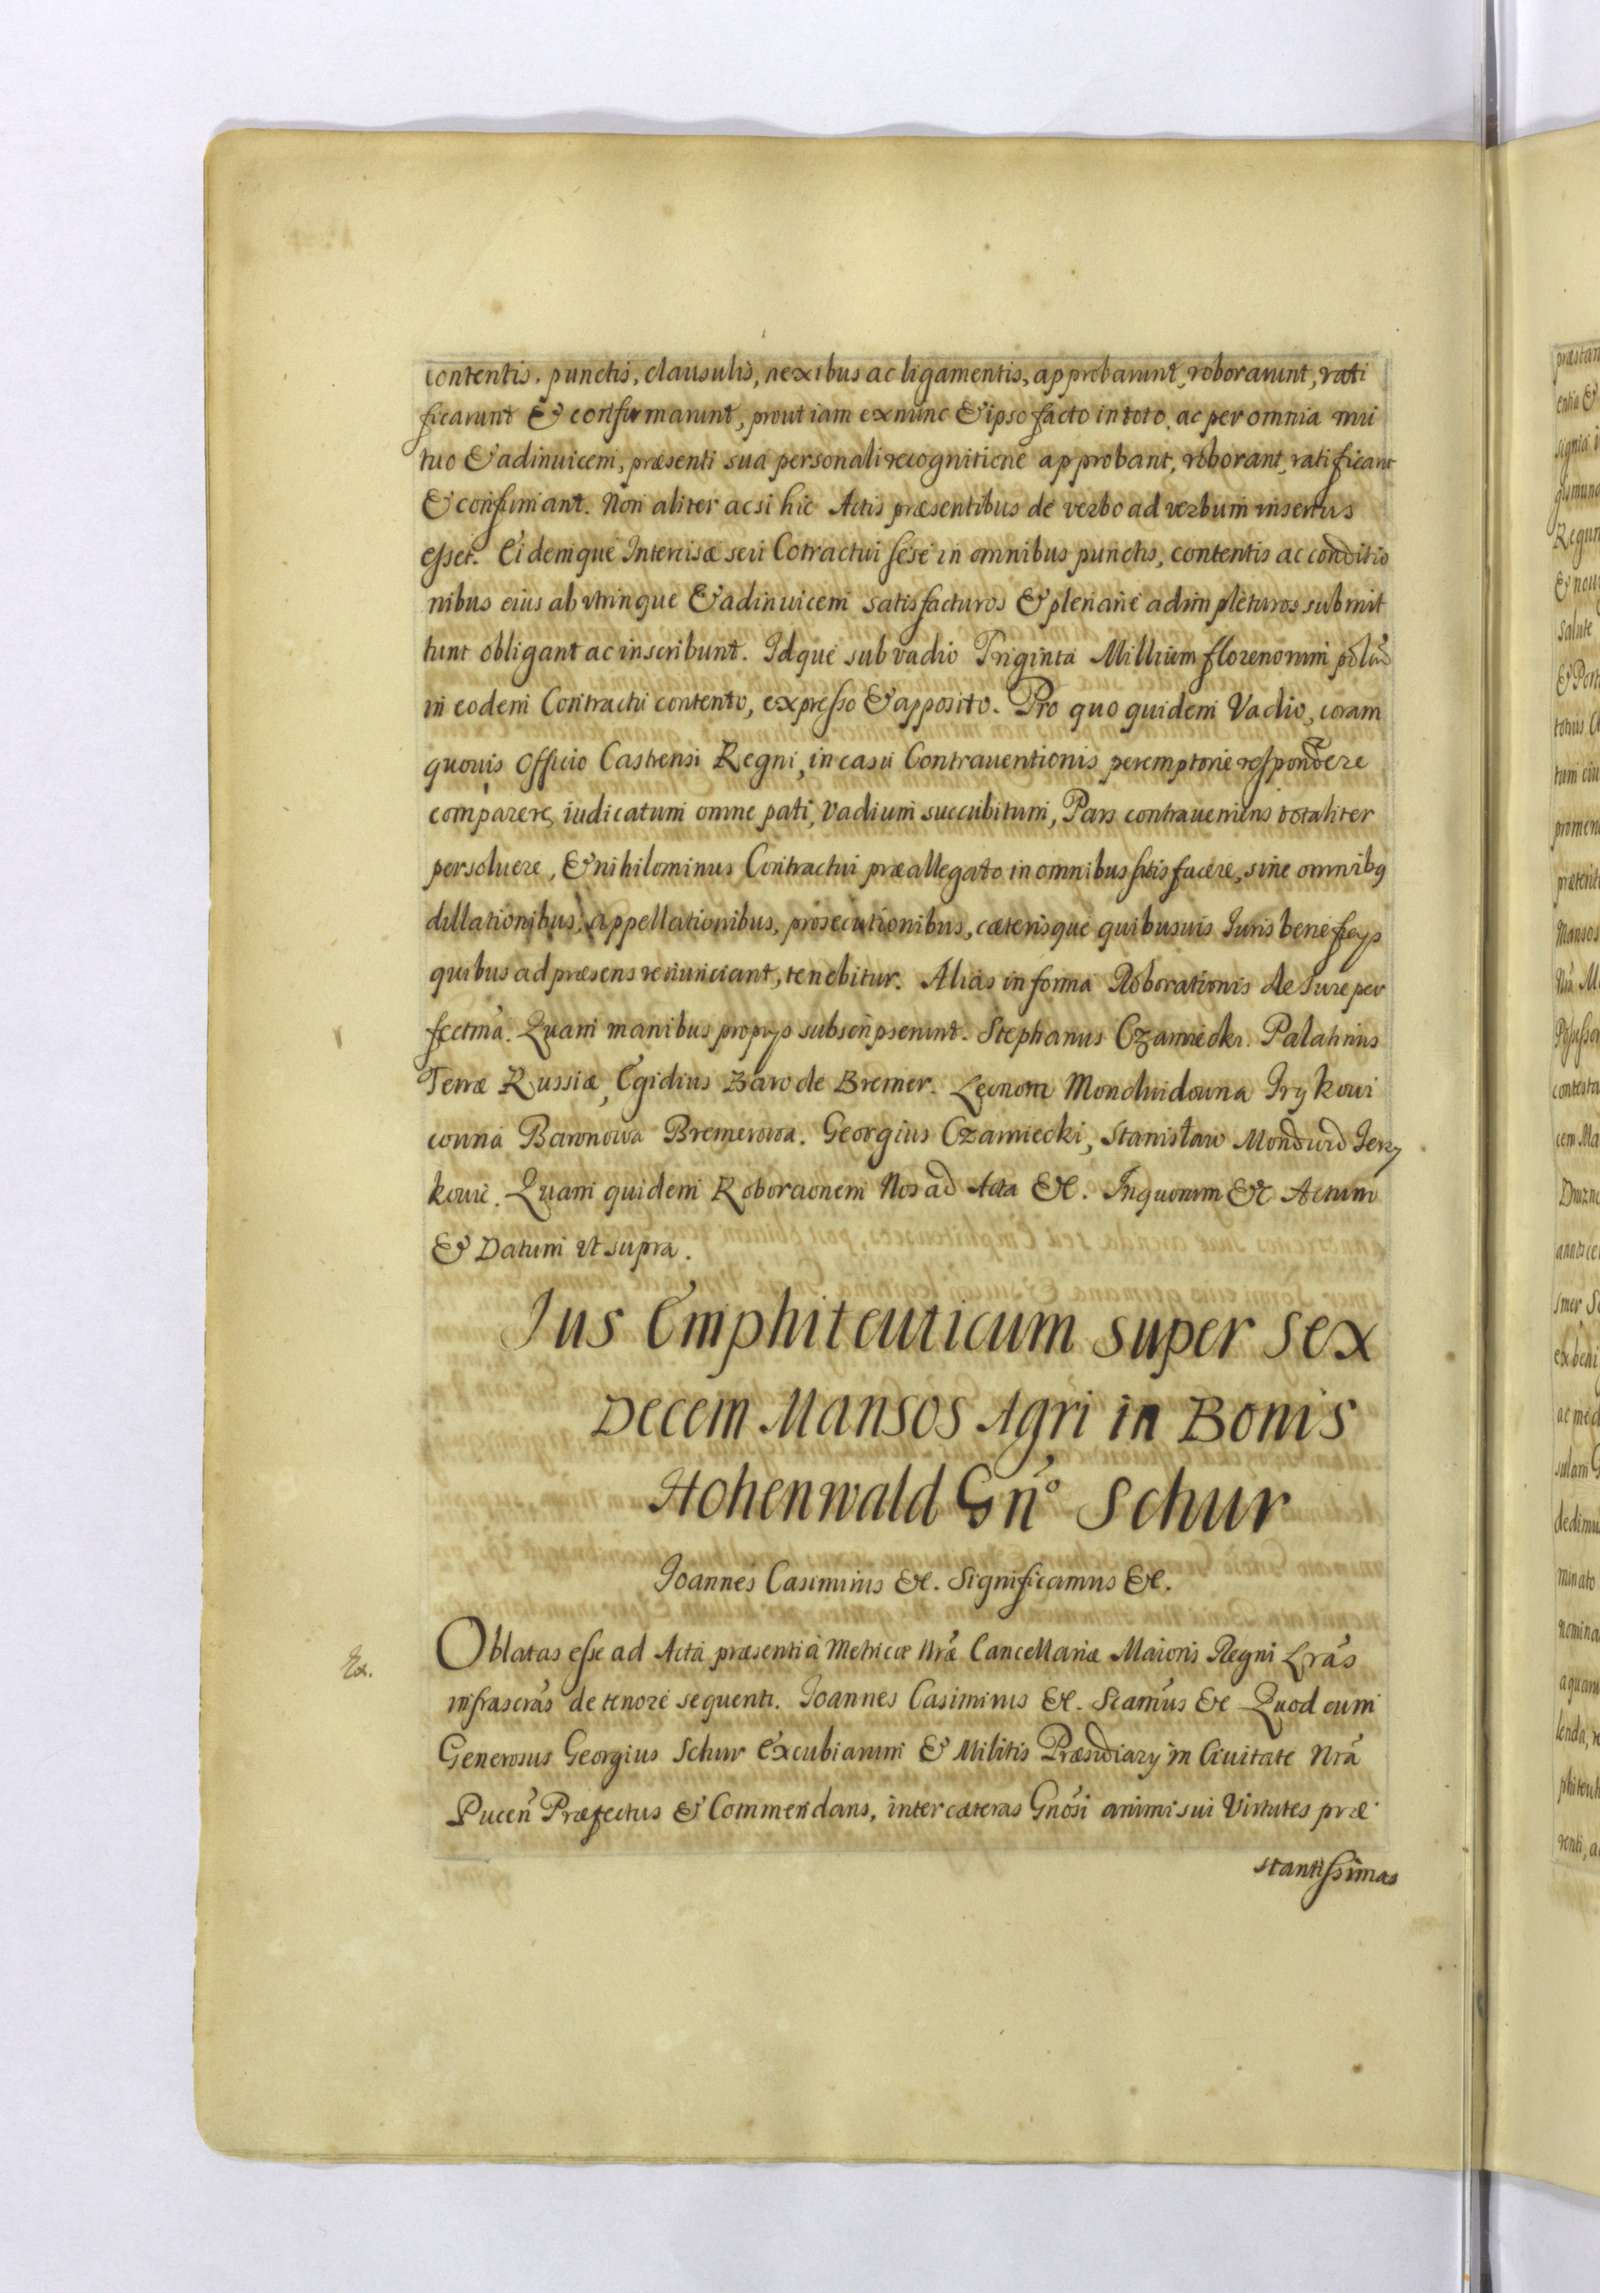 contentis, punctis, clausulis, nexibus ac ligamentis, approbarunt, roborarunt, rati
ficarunt & confirmarunt, prout iam ex nunc & ipso facto in toto, ac per omnia mu
tuo & adinuicem, præsenti sua personali recognitione approbant, roborant, ratificant
& confirmant. Non aliter ac si hic Actis præsentibus de verbo ad verbum insertus
esset. Eidemque Intercisæ seu Cotractui sese in omnibus punctis, contentis ac conditio
nibus eius ab vtrinque & adinuicem satisfacturos & plenarie adimpleturos submit
tunt obligant ac inscribunt. Idque sub vadio Triginta Millium florenorum polñ
in eodem Contractu contento, expresso & apposito. Pro quo quidem Vadio, coram
quouis Officio Castrensi Regni, in casu Contrauentionis peremptorie respondere
comparere, iudicatum omne pati, Vadium succubitum, Pars contraueniens totaliter
persoluere, & nihilominus Contractui præallegato in omnibus satisfacere, sine omnibq
dillationibus, appellationibus, prosecutionibus, cæterisque quibusuis Iuris beneficys
quibus ad præsens renunciant, tenebitur. Alias in forma Roborationis de Iure per
fectma. Quam manibus proprys subscripserunt. Stephanus Czarniecki. Palatinus
Terræ Russiæ, Egidius Baro de Bremer. Leonora Mondwidouna Iry koui
couna Baronowa Bremerowa. Georgius Czarniecki, Stanisław Mondwid Ierzy
kowic. Quam quidem Roboraonem Nos ad Acta &c. In quorum &c Actum
& Datum vt supra.
Ius Emphiteuticum super sex
Decem Mansos Agri in Bonis
Hohenwald Gñ° Schur
Ioannes Casimirus &c. Significamus &c.
Ex.
Oblatas esse ad Acta præsentia Metricæ Nrǽ Cancellariæ Maioris Regni Lrás
infrascrás de tenore sequenti. Ioannes Casimirus &c. Scamus &c Quod cum
Generosus Georgius Schur Excubiarum & Militis Præsidiary in Ciuitate Nrá
Pucen̄ Præfectus & Commendans, inter cæteras Gnosi animi sui Virtutes præ
stantissimas